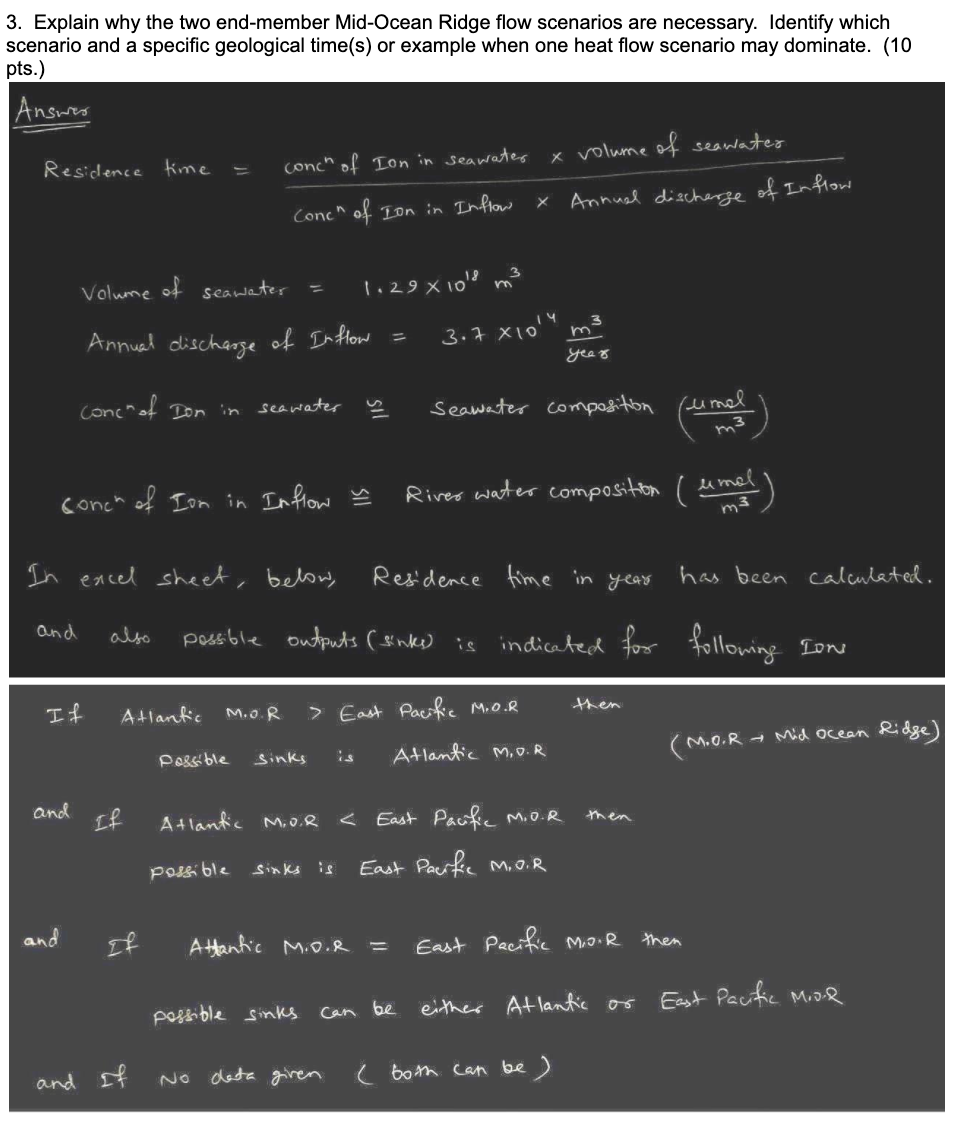 3. Explain why the two end-member Mid-Ocean Ridge flow scenarios are necessary. Identify which
scenario and a specific geological time(s) or example when one heat flow scenario may dominate. (10
pts.)
Answer
Residence time = concⁿ of Ion in seawater × volume of seawater
concⁿ of Ion in Inflow × Annual discharge of Inflow
Volume of seawater = 1.29 × 10¹⁸ m³
Annual discharge of Inflow = 3.7 × 10¹⁴ m³
year
concⁿ of Ion in seawater ≅ Seawater composition (μmol
m³)
concⁿ of Ion in Inflow ≅ River water composition (μmol
m³)
In excel sheet, below, Residence time in year has been calculated.
and also possible outputs (sinks) is indicated for following Ions
If Atlantic M.O.R > East Pacific M.O.R then
(M.O.R → Mid Ocean Ridge)
possible sinks is Atlantic M.O.R
and If Atlantic M.O.R < East Pacific M.O.R then
possible sinks is East Pacific M.O.R
and If Atlantic M.O.R = East Pacific M.O.R then
possible sinks can be either Atlantic or East Pacific M.O.R
and If No data given ( both can be )